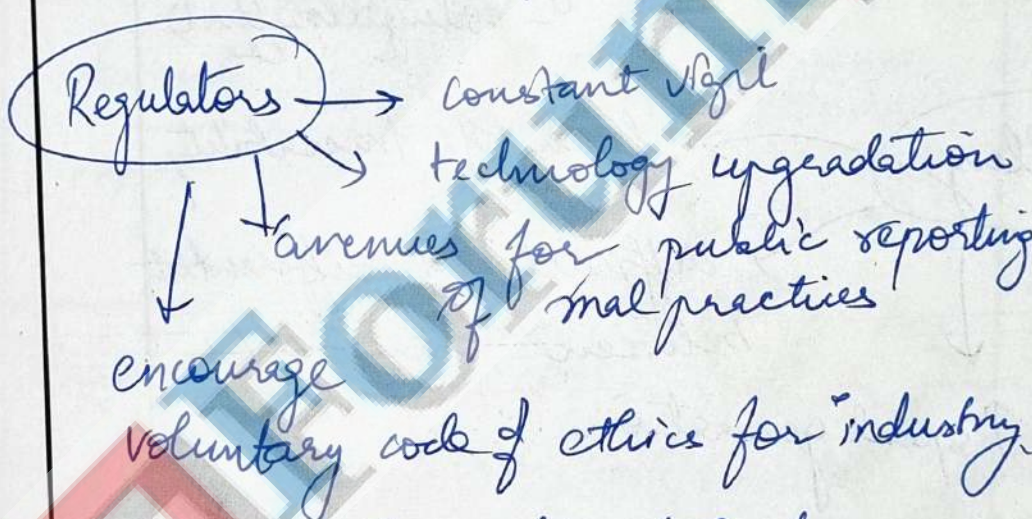 Regulators → constant vigil
technology upgradation
avenues for public reporting
of malpractices
encourage
voluntary code of ethics for industry
Forum